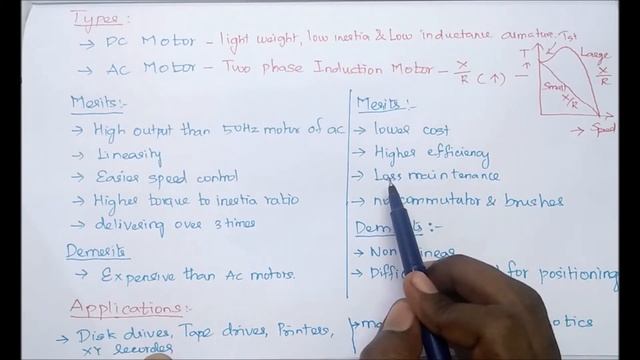 Types:-
→ DC Motor - light weight, low inertia & Low inductance armature.
→ AC Motor - Two phase Induction Motor - X/R (↑) →
Tst
T
↑
Large X/R
Small X/R
→ Speed
Merits:-
→ High output than 50Hz motor of ac
→ Linearity
→ Easier speed control
→ Higher torque to inertia ratio
→ delivering over 3 times
Demerits
→ Expensive than AC motors.
Merits:-
→ lower cost
→ Higher efficiency
→ Less maintenance
→ no commutator & brushes
Demerits:-
→ Non linear
→ for positioning
Applications:-
→ Disk drives, Tape drives, Printers,
XY recorder